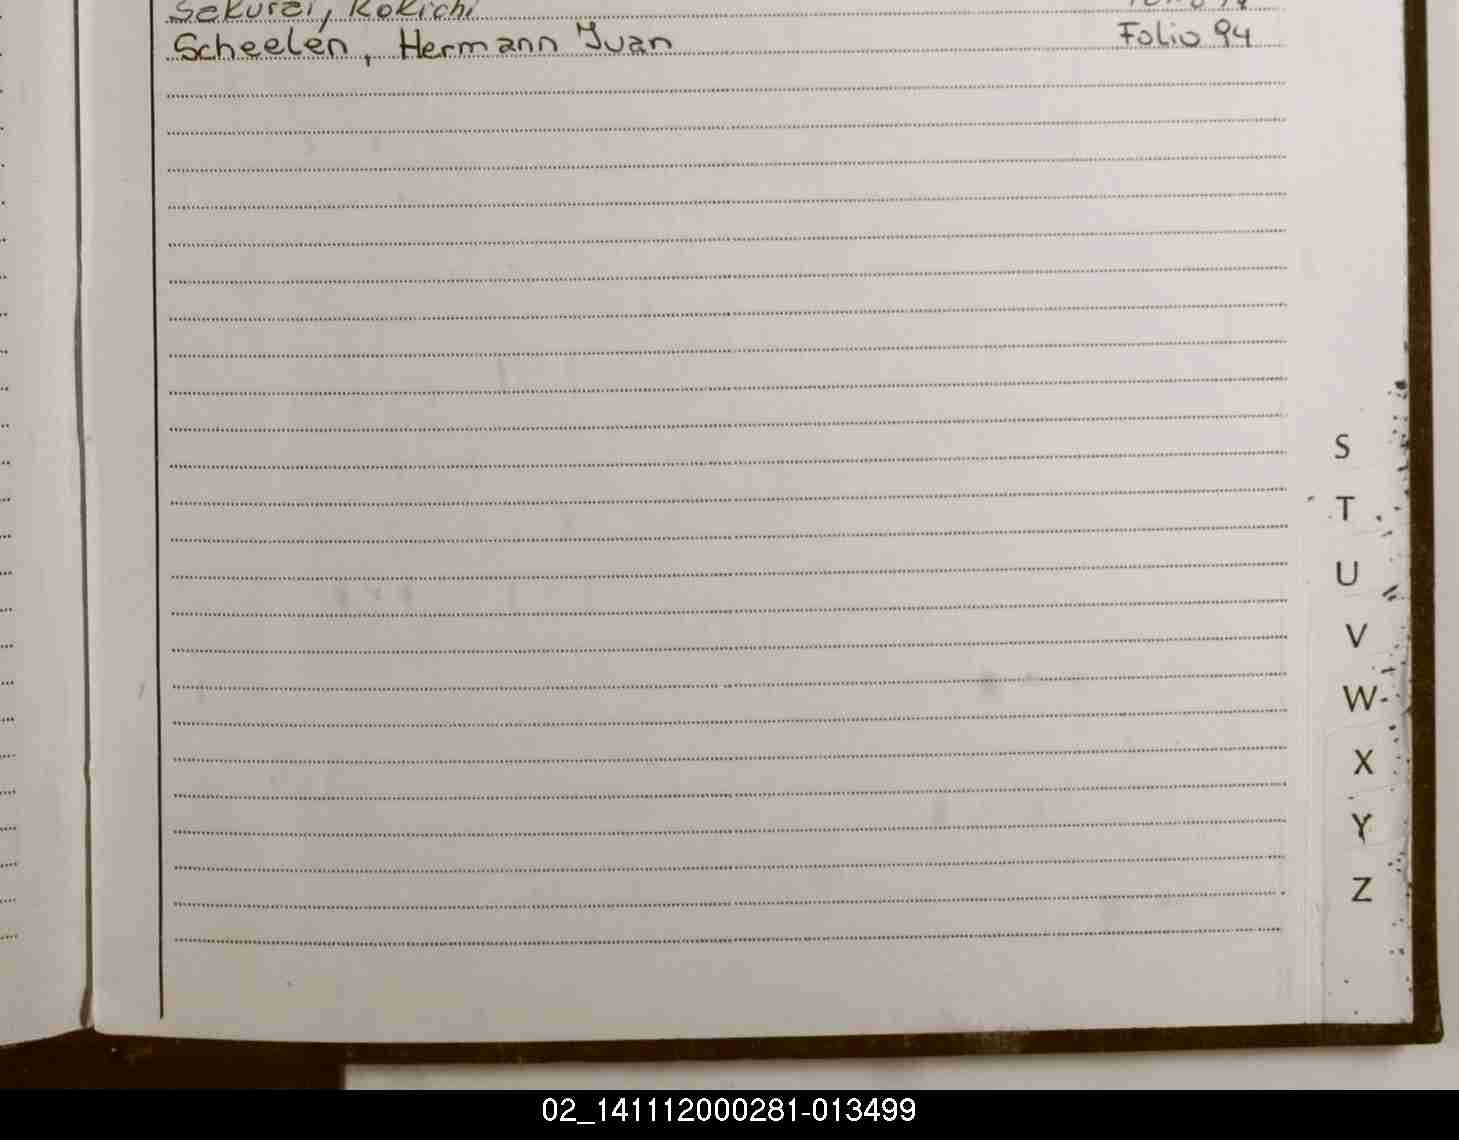 Sakurai, Kokichi
Scheelen, Hermann Juan Folio 94
S
T
U
V
W
X
Y
Z
02_141112000281-013499